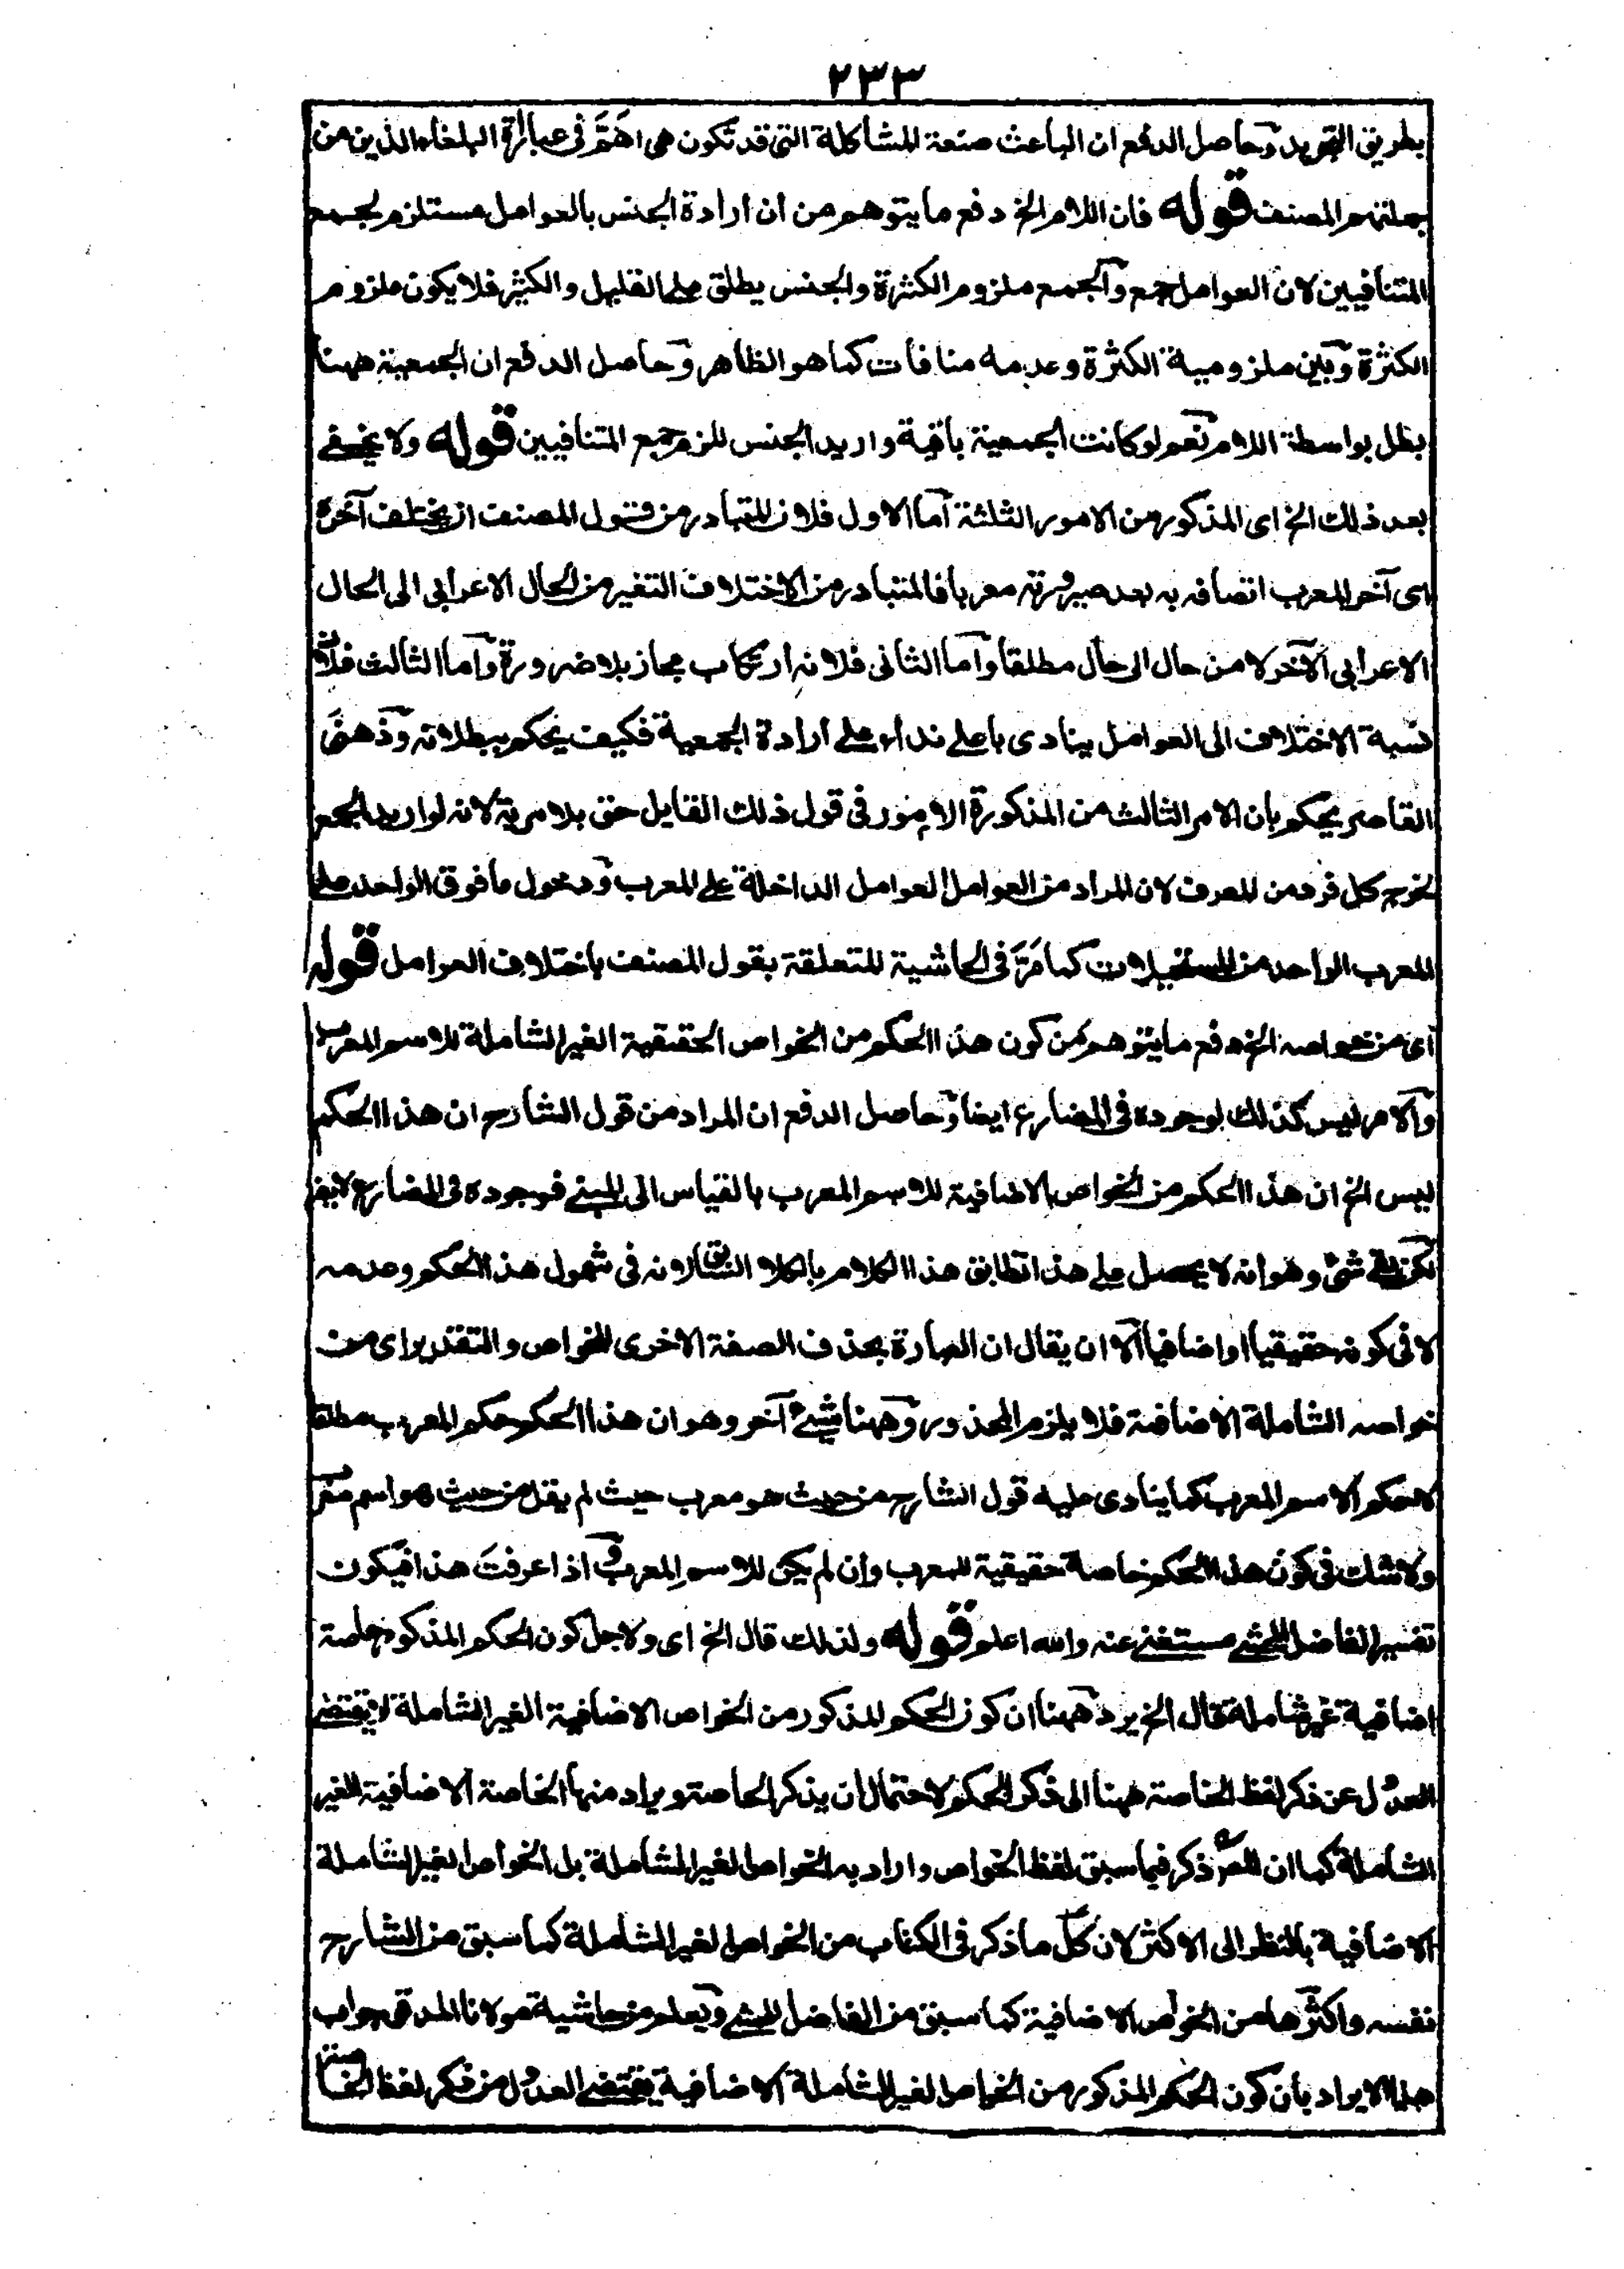 ٢٣٣
بطريق التجريد وحاصل الدفع ان الباعث صنعة المشاكلة التى قد تكون هى اهَمَّ فى عبارة البلغاء الذين من
جملتهم المصنف قوله فان اللام الخ دفع ما يتوهم من ان ارادة الجنس بالعوامل مستلزم لجمع
المتنافيين لان العوامل جمع والجمع ملزوم الكثرة والجنس يطلق على القليل والكثير فلا يكون ملزوم
الكثرة وبين ملزومية الكثرة وعدمه منافات كما هو الظاهر وحاصل الدفع ان الجمعية ههنا
بطل بواسطة اللام نعم لو كانت الجمعية باقية واريد الجنس للزم جمع المتنافيين قوله ولا يخفى
بعد ذلك الخ اى المذكور من الامور الثلثة آما الاول فلان المتبادر من قول المصنف ان يختلف آخره
اى آخر المعرب اتصافه به بعد صيرورته معربا فالمتبادر من الاختلاف التغير من الحال الاعرابى الى الحال
الاعرابى الآخر لا من حال الى حال مطلقا وآما الثانى فلانه ارتكاب مجاز بلا ضرورة وآما الثالث فلان
نسبة الاختلاف الى العوامل ينادى باعلے نداء علے ارادة الجمعية فكيف يحكم ببطلانه وذهنى
القاصر يحكم بان الامر الثالث من المذكورة الامور فى قول ذلك القايل حق بلا مرية لانه لو اريد الجمع
لخرج كل فرد من المعرف لان المراد من العوامل العوامل الداخلة على المعرب ودخول ما فوق الواحد على
المعرب الواحد من المستحيلات كما مَرَّ فى الحاشية المتعلقة بقول المصنف باختلاف العوامل قوله
اى من خواصه الخ دفع ما يتوهم من كون هذا الحكم من الخواص الحقيقية الغير الشاملة للاسم المعرب
والامر ليس كذلك لوجوده فى المضارع ايضا وحاصل الدفع ان المراد من قول الشارح ان هذا الحكم
ليس الخ ان هذا الحكم من الخواص الاضافية للاسم المعرب بالقياس الى المبنے فوجوده فى المضارع لا يضر
لكن بقے شئ وهو انه لا يحصل على هذا تطابق هذا الكلام بالكلام السابق لانه فى شمول هذا الحكم وعدمه
لا فى كونه حقيقيا او اضافيا الا ان يقال ان العبارة بحذف الصفة الاخرى للخواص والتقدير اى من
خواصه الشاملة الاضافية فلا يلزم المحذور وههنا شئ آخر وهو ان هذا الحكم حكم المعرب مطلقا
لا حكم الاسم المعرب كما ينادى عليه قول الشارح من حيث هو معرب حيث لم يقل من حيث هو اسم معرب
ولا شك فى كون هذا الحكم خاصة حقيقية للمعرب وان لم يكن للاسم المعرب واذا عرفت هذا فيكون
تفسير الفاضل المحشے مستغنے عنه والله اعلم قوله ولذلك قال الخ اى ولاجل كون الحكم المذكور خاصة
اضافية غير شاملة قال الخ يرد ههنا ان كون الحكم المذكور من الخواص الاضافية الغير الشاملة لا يقتضے
العدول عن ذكر لفظ الخاصة ههنا الى ذكر الحكم لاحتمال ان يذكر الخاصة ويراد منها الخاصة الاضافية الغير
الشاملة كما ان المص ذكر فيما سبق لفظ الخواص واراد به الخواص الغير الشاملة بل الخواص الغير الشاملة
الاضافية بالنظر الى الاكثر لان كلّ ما ذكر فى الكتاب من الخواص الغير الشاملة كما سبق من الشارح
نفسه واكثرها من الخواص الاضافية كما سبق من الفاضل المحشے ويعلم من حاشية مولانا المدقق جواب
هذا الايراد بأن كون الحكم المذكور من الخواص الغير الشاملة الاضافية يقتضے العدول من ذكر لفظ الخاصة